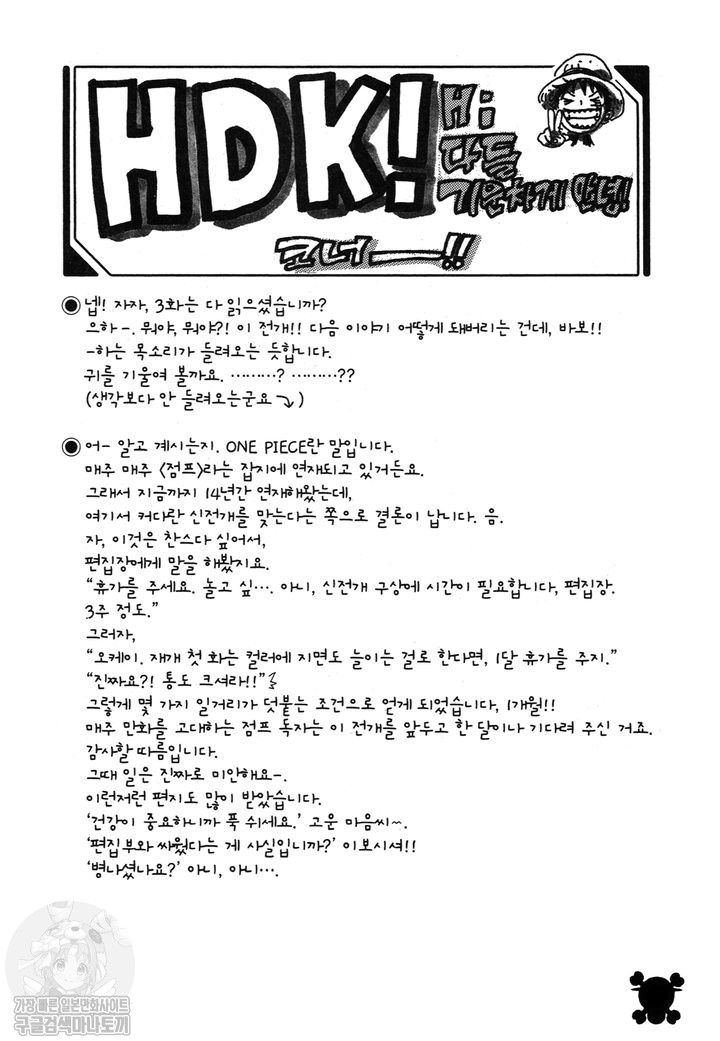 HDK!
Hi
다들
기운차게 안녕!
코너ㅡ!!
넵! 자자, 3화는 다 읽으셨습니까?
으하-. 뭐야, 뭐야?! 이 전개!! 다음 이야기 어떻게 돼버리는 건데, 바보!!
-하는 목소리가 들려오는 듯합니다.
귀를 기울여 볼까요. ………? ………??
(생각보다 안 들려오는군요⤵)
어- 알고 계시는지. ONE PIECE란 말입니다.
매주 매주 〈점프〉라는 잡지에 연재되고 있거든요.
그래서 지금까지 14년간 연재해왔는데,
여기서 커다란 신전개를 맞는다는 쪽으로 결론이 납니다. 음.
자, 이것은 찬스다 싶어서,
편집장에게 말을 해봤지요.
“휴가를 주세요. 놀고 싶…. 아니, 신전개 구상에 시간이 필요합니다, 편집장.
3주 정도.”
그러자,
“오케이. 재개 첫 화는 컬러에 지면도 늘이는 걸로 한다면, 1달 휴가를 주지.”
“진짜요?! 통도 크셔라!!”
그렇게 몇 가지 일거리가 덧붙는 조건으로 얻게 되었습니다, 1개월!!
매주 만화를 고대하는 점프 독자는 이 전개를 앞두고 한 달이나 기다려 주신 거죠.
감사할 따름입니다.
그때 일은 진짜로 미안해요-.
이런저런 편지도 많이 받았습니다.
‘건강이 중요하니까 푹 쉬세요.’ 고운 마음씨~.
‘편집부와 싸웠다는 게 사실입니까?’ 이보시셔!!
‘병나셨나요?’ 아니, 아니….
가장 빠른 일본만화사이트
구글검색마나토끼